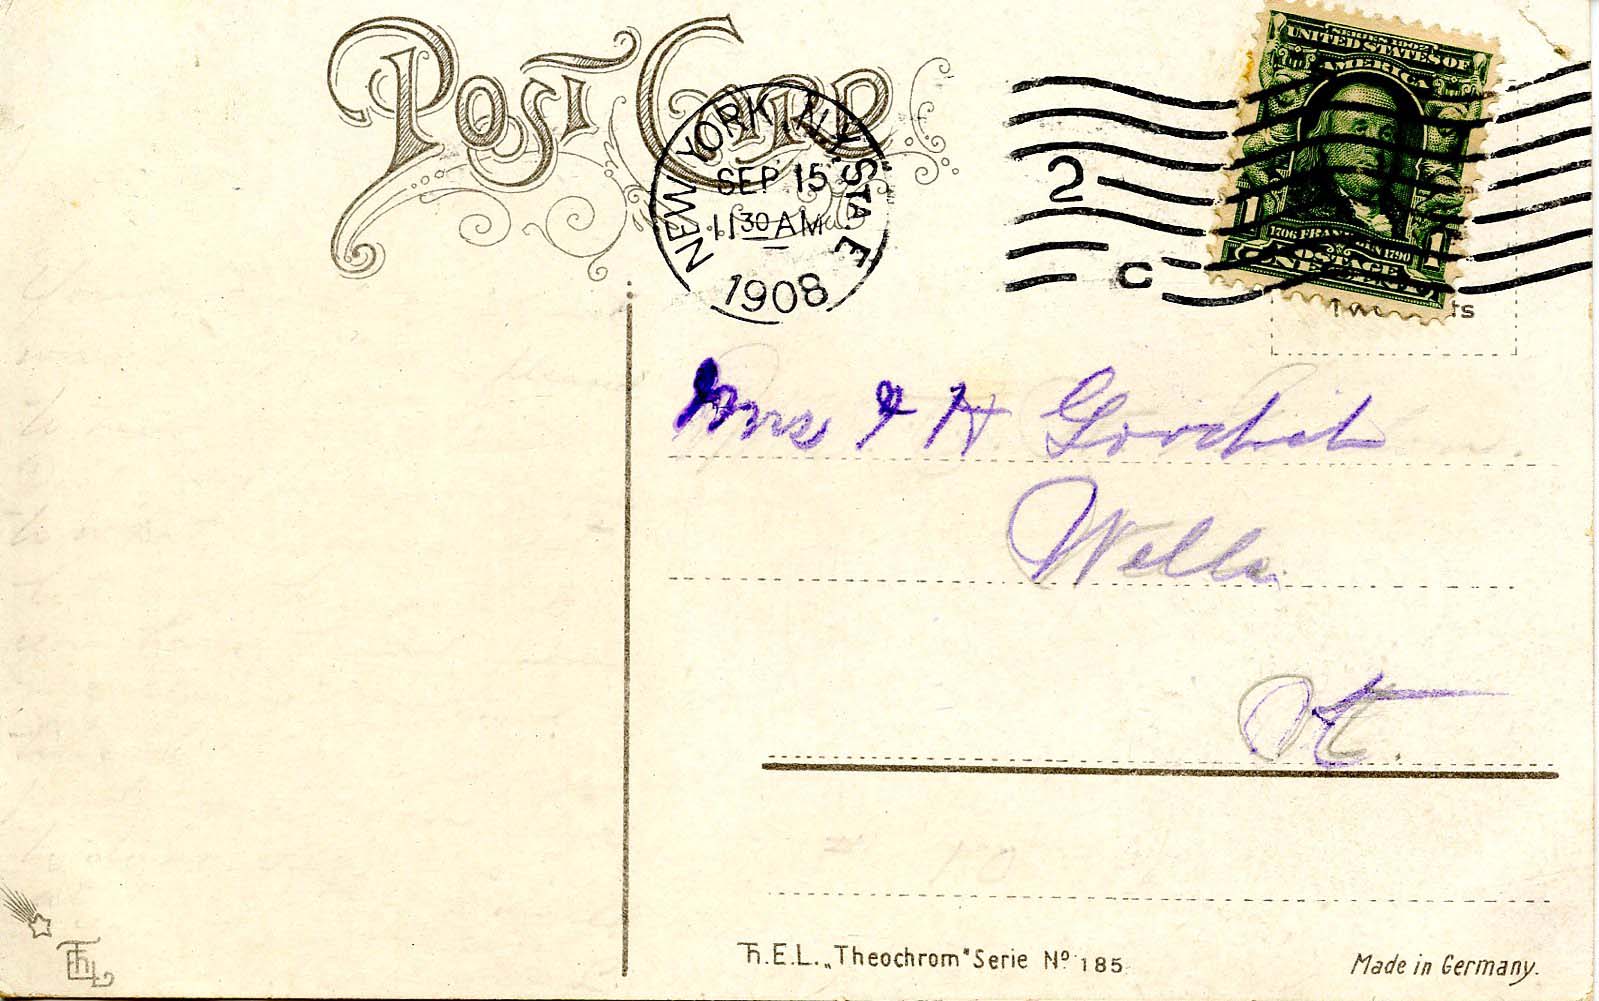 Post Card
NEW YORK, N.Y. STA. E
SEP 15
11 30 AM
1908
2
C
SERIES 1902
UNITED STATES OF
AMERICA
1706 FRANKLIN 1790
POSTAGE
1 ONE CENT 1
Mrs
H
Wells
Vt.
Th.E.L. „Theochrom" Serie Nº 185
Made in Germany.
ThEL